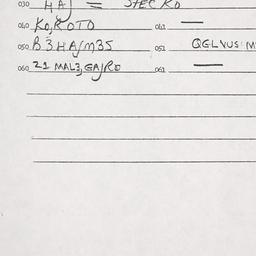 030 HAJ = STECKO
040 KO,KOTO 041 —
050 B3HAJM35 051 QGLVUS M
060 21 MAL3,GAJRO 061 —